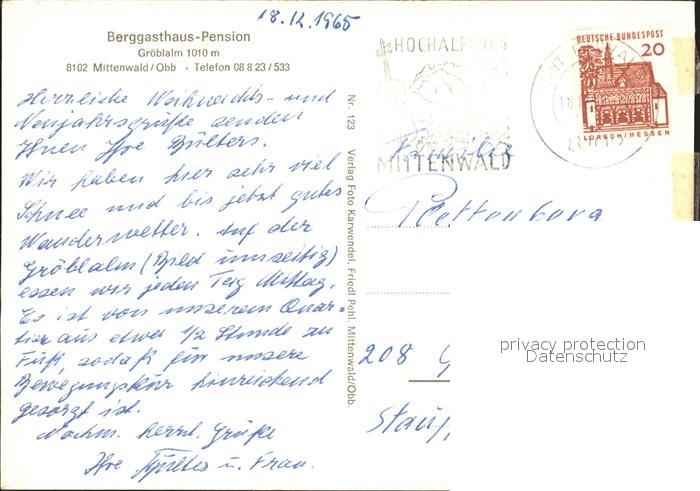 18.12.1965
Berggasthaus-Pension
Gröblalm 1010 m
8102 Mittenwald/Obb · Telefon 08 8 23/533
Herzliche Weihnachts- und
Neujahrsgrüße senden
Ihnen Ihre Bülters.
Wir haben hier sehr viel
Schnee und bis jetzt gutes
Wanderwetter. Auf der
Gröblalm (Bild umseitig)
essen wir jeden Tag Mittag.
Es ist von unserem Quar-
tier aus etwa 1/2 Stunde zu
Fuß, sodaß für unsere
Bewegungskur hinreichend
gesorgt ist.
Nochm. herzl. Grüße
Ihre Bülters u. Frau.
Nr. 123 Verlag Foto Karwendel, Friedl Pehl, Mittenwald/Obb.
HOCHALPINES
MITTENWALD
DEUTSCHE BUNDESPOST
20
LORSCH/HESSEN
Familie
208
privacy protection
Datenschutz